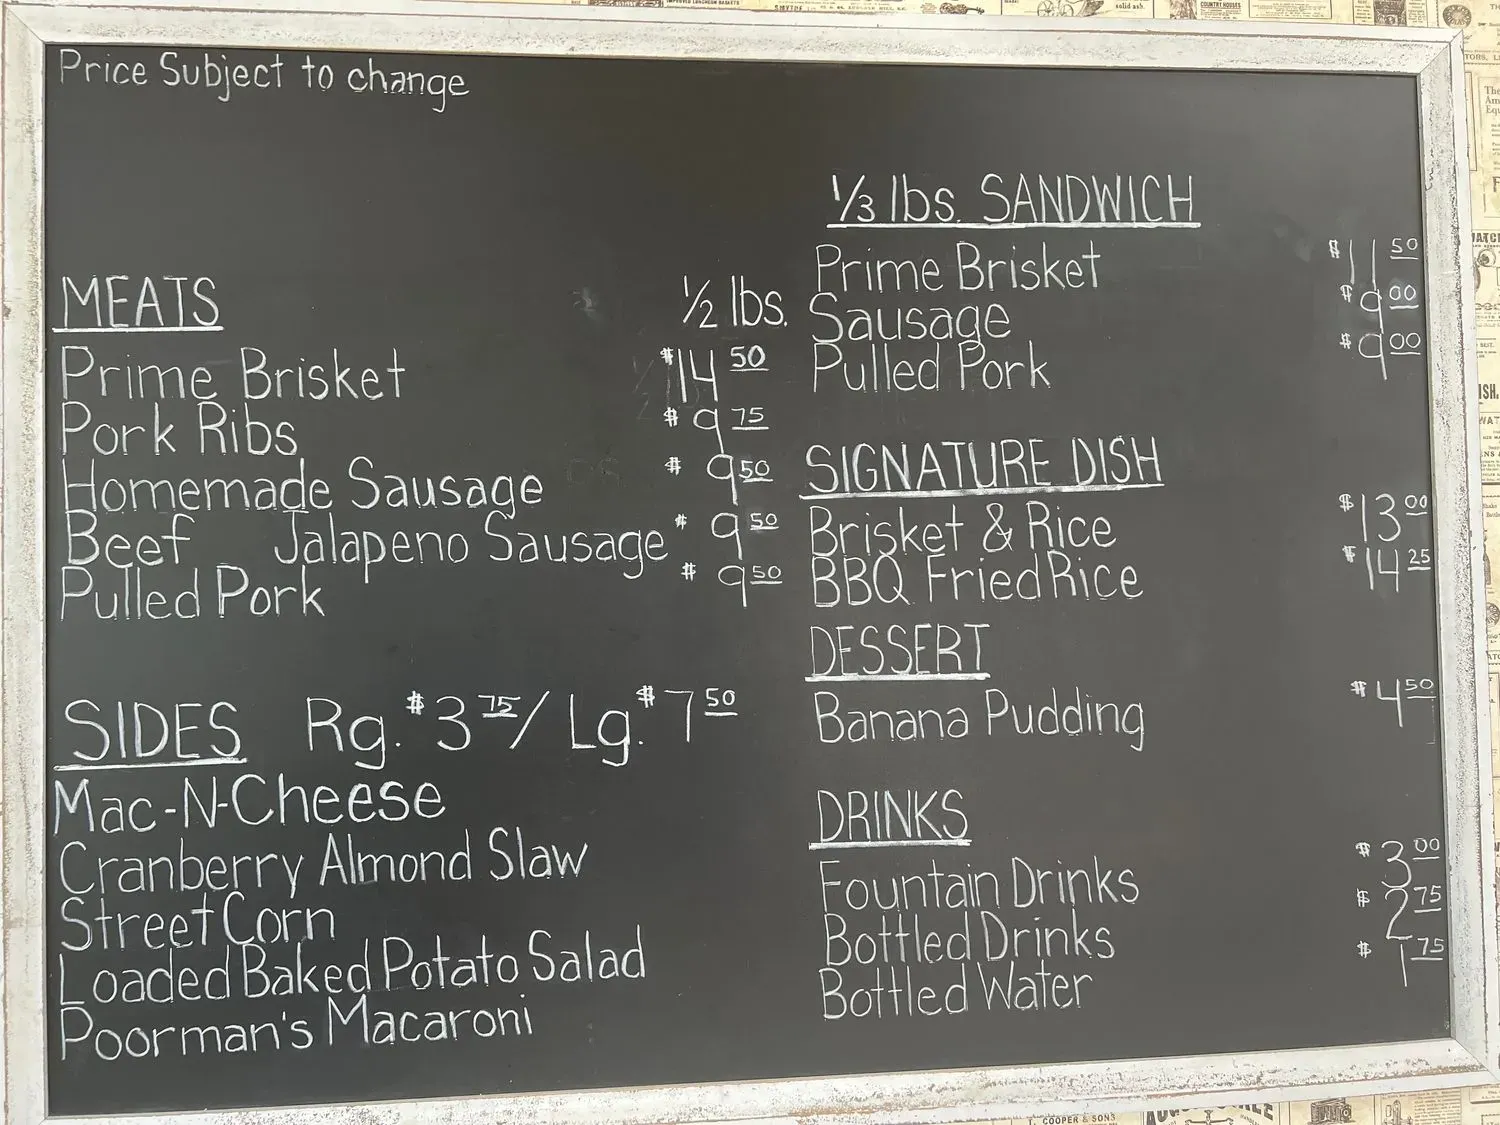 Price Subject to change
MEATS 1/2 lbs.
Prime Brisket $14.50
Pork Ribs $9.75
Homemade Sausage $9.50
Beef Jalapeno Sausage $9.50
Pulled Pork $9.50
SIDES Rg. $3.75 / Lg. $7.50
Mac-N-Cheese
Cranberry Almond Slaw
Street Corn
Loaded Baked Potato Salad
Poorman's Macaroni
1/3 lbs. SANDWICH
Prime Brisket $11.50
Sausage $9.00
Pulled Pork $9.00
SIGNATURE DISH
Brisket & Rice $13.00
BBQ Fried Rice $14.25
DESSERT
Banana Pudding $4.50
DRINKS
Fountain Drinks $3.00
Bottled Drinks $2.75
Bottled Water $1.75
COUNTRY HOUSES
solid ash.
COOPER & SONS